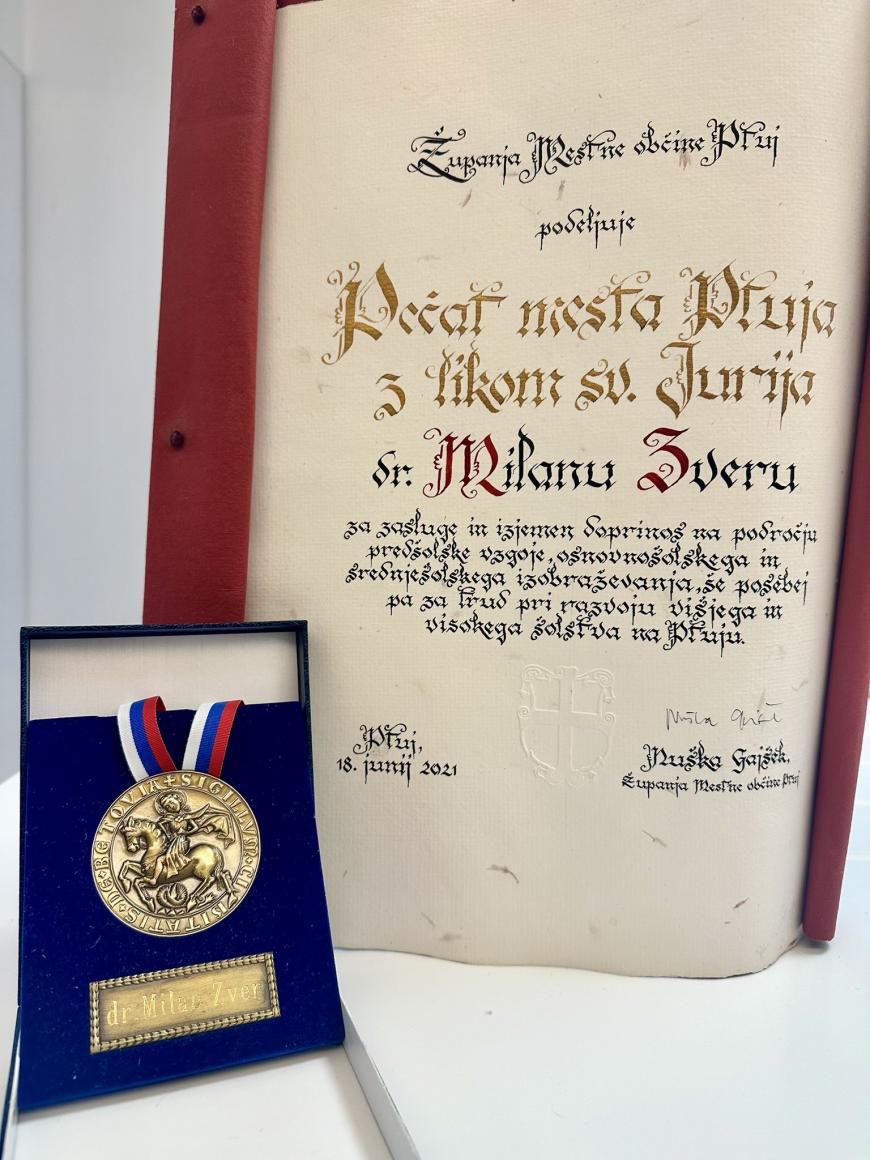 Županja Mestne občine Ptuj
podeljuje
Pečat mesta Ptuja
z likom sv. Jurija
dr. Milanu Zveru
za zasluge in izjemen doprinos na področju
predšolske vzgoje, osnovnošolskega in
srednješolskega izobraževanja, še posebej
pa za trud pri razvoju višjega in
visokega šolstva na Ptuju.
Ptuj,
18. junij 2021
Nuška Gajšek,
Županja Mestne občine Ptuj
+ SIGILLVM · CIVITATIS · DE · BETOVIA
dr Milan Zver